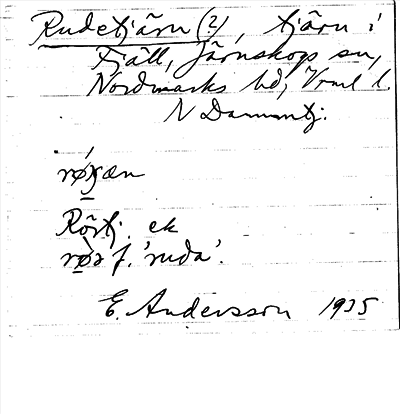 Rudetjärn (?), tjärn i
Fjäll, Järnskogs sn,
Nordmarks hd, Vrml l.
N Dammtj.
Rörtj. ek
f. 'ruda'.
E. Andersson 1935